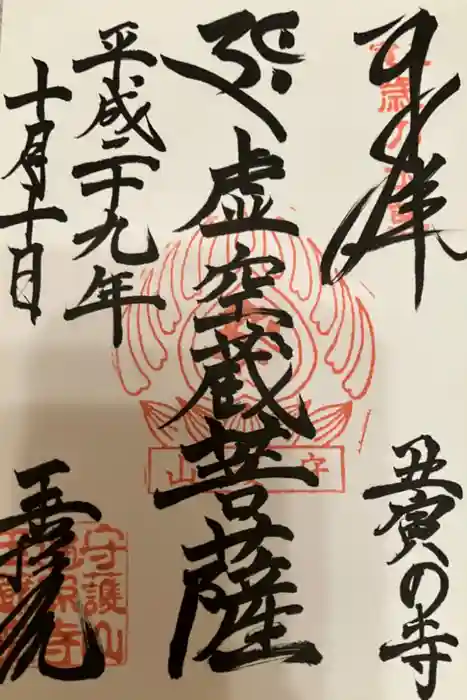 奉拝
丑寅の寺
虚空蔵菩薩
平成二十九年
十月二十日
玉蔵院
守護山